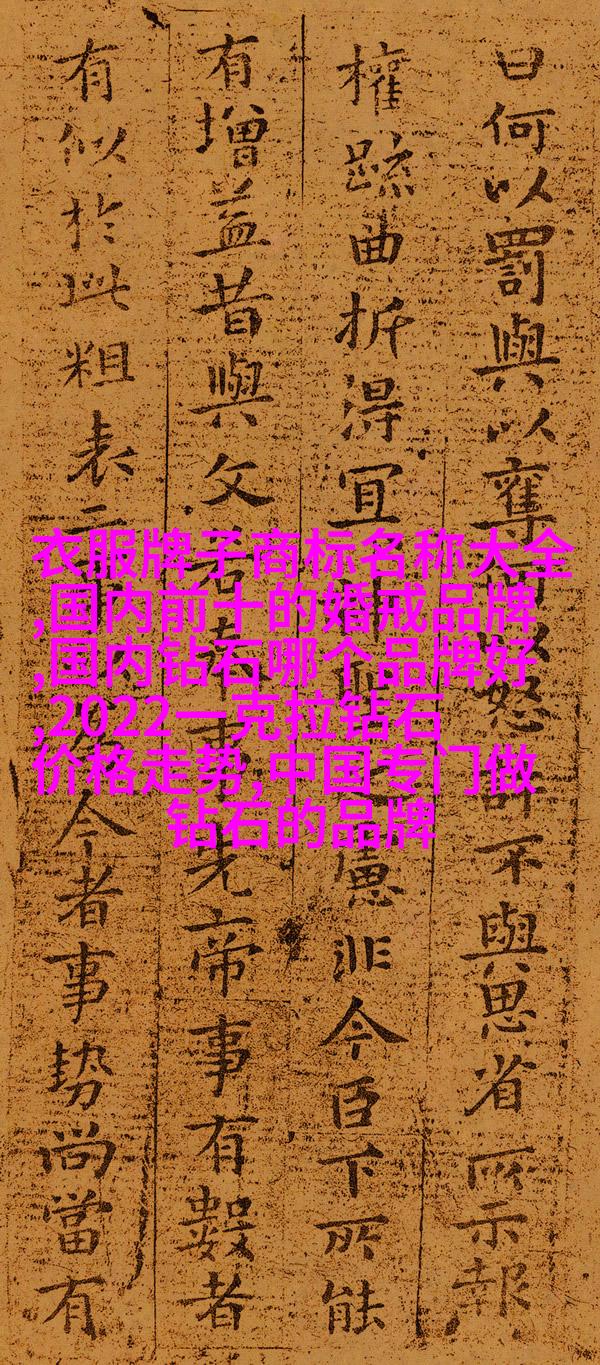 曰何以罰與以奪以怒許不與思省所示報
權疏曲折得宜慮非今臣下所能
有增益昔與文若奉事先帝事有數者
有似於此粗表二今者事勢尚當有
衣服牌子商标名称大全
,国内前十的婚戒品牌
,国内钻石哪个品牌好
,2022一克拉钻石
价格走势,中国专门做
钻石的品牌